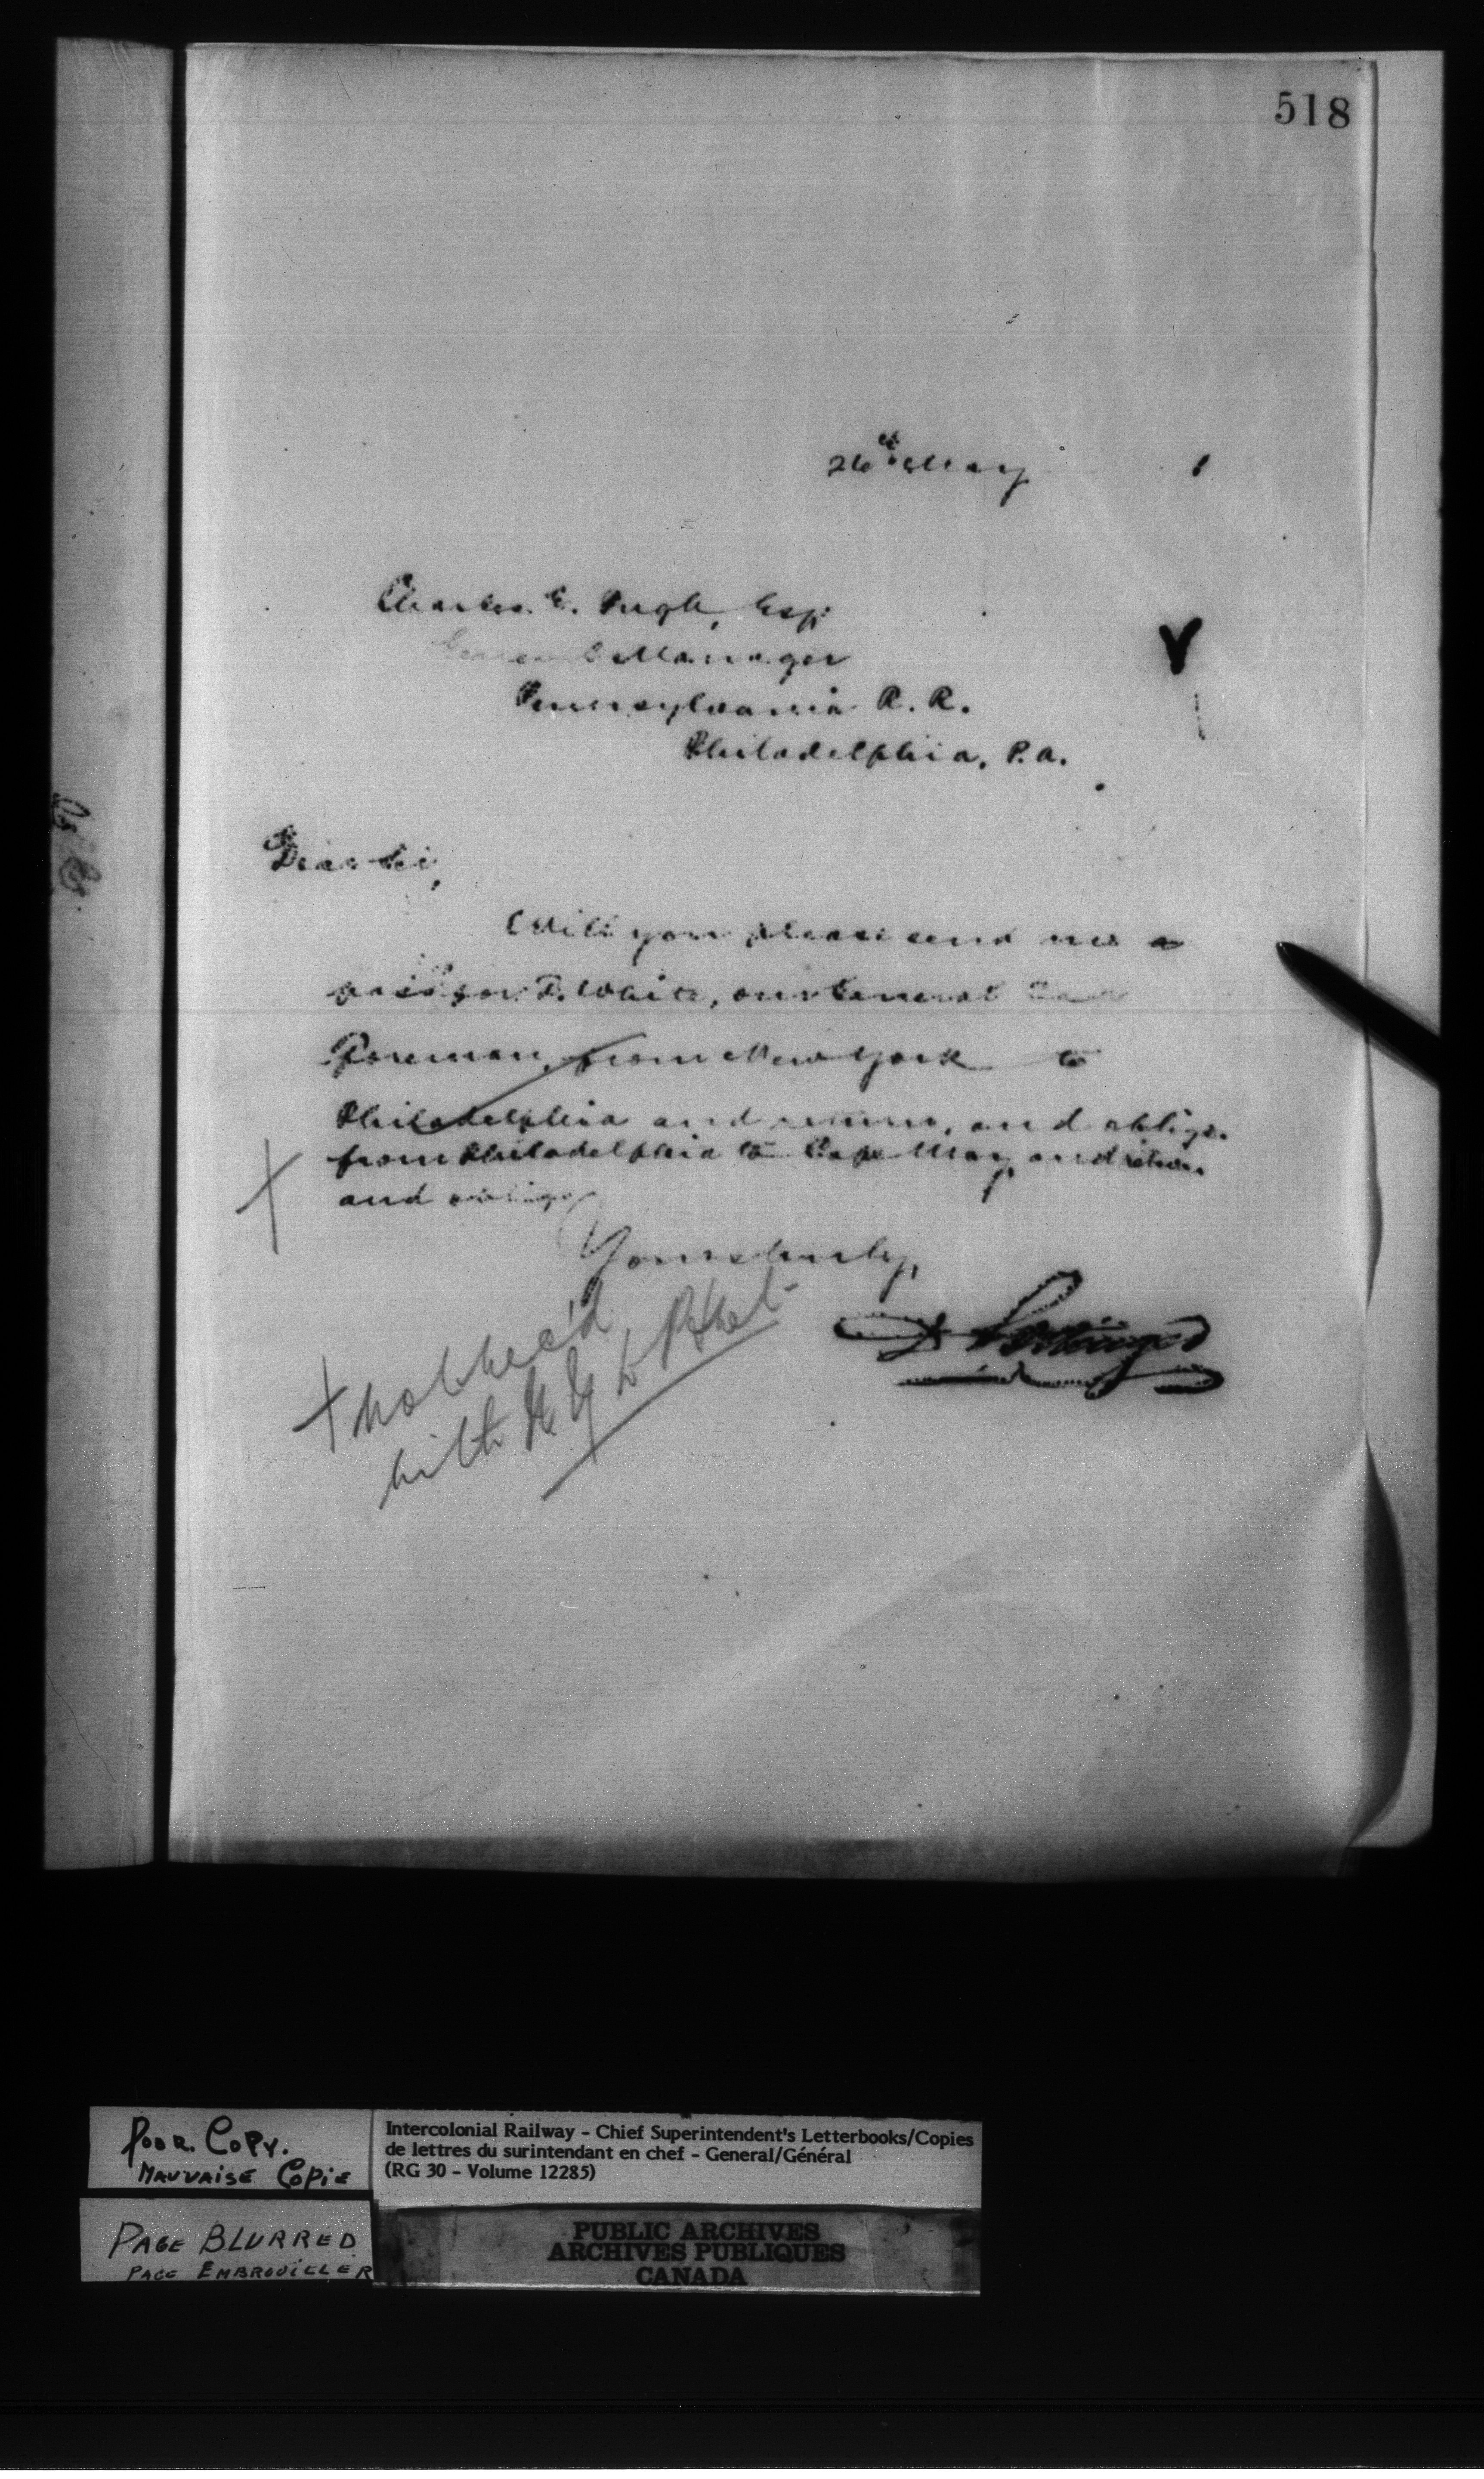 518
26th May
Charles E. Pugh, Esq:
General Manager
Pennsylvania R. R.
Philadelphia, P.a.
Dear Sir,
Will you please send me a
pass for F. White, our General Car
Foreman, from New York to
Philadelphia and return, and oblige.
from Philadelphia to Cape May and return
and oblige
Yours truly,
D Pottinger
+ not
with
Poor. Copy.
Mauvaise Copie
Page Blurred
Page Embrouiller
Intercolonial Railway - Chief Superintendent's Letterbooks/Copies
de lettres du surintendant en chef - General/Général
(RG 30 - Volume 12285)
PUBLIC ARCHIVES
ARCHIVES PUBLIQUES
CANADA